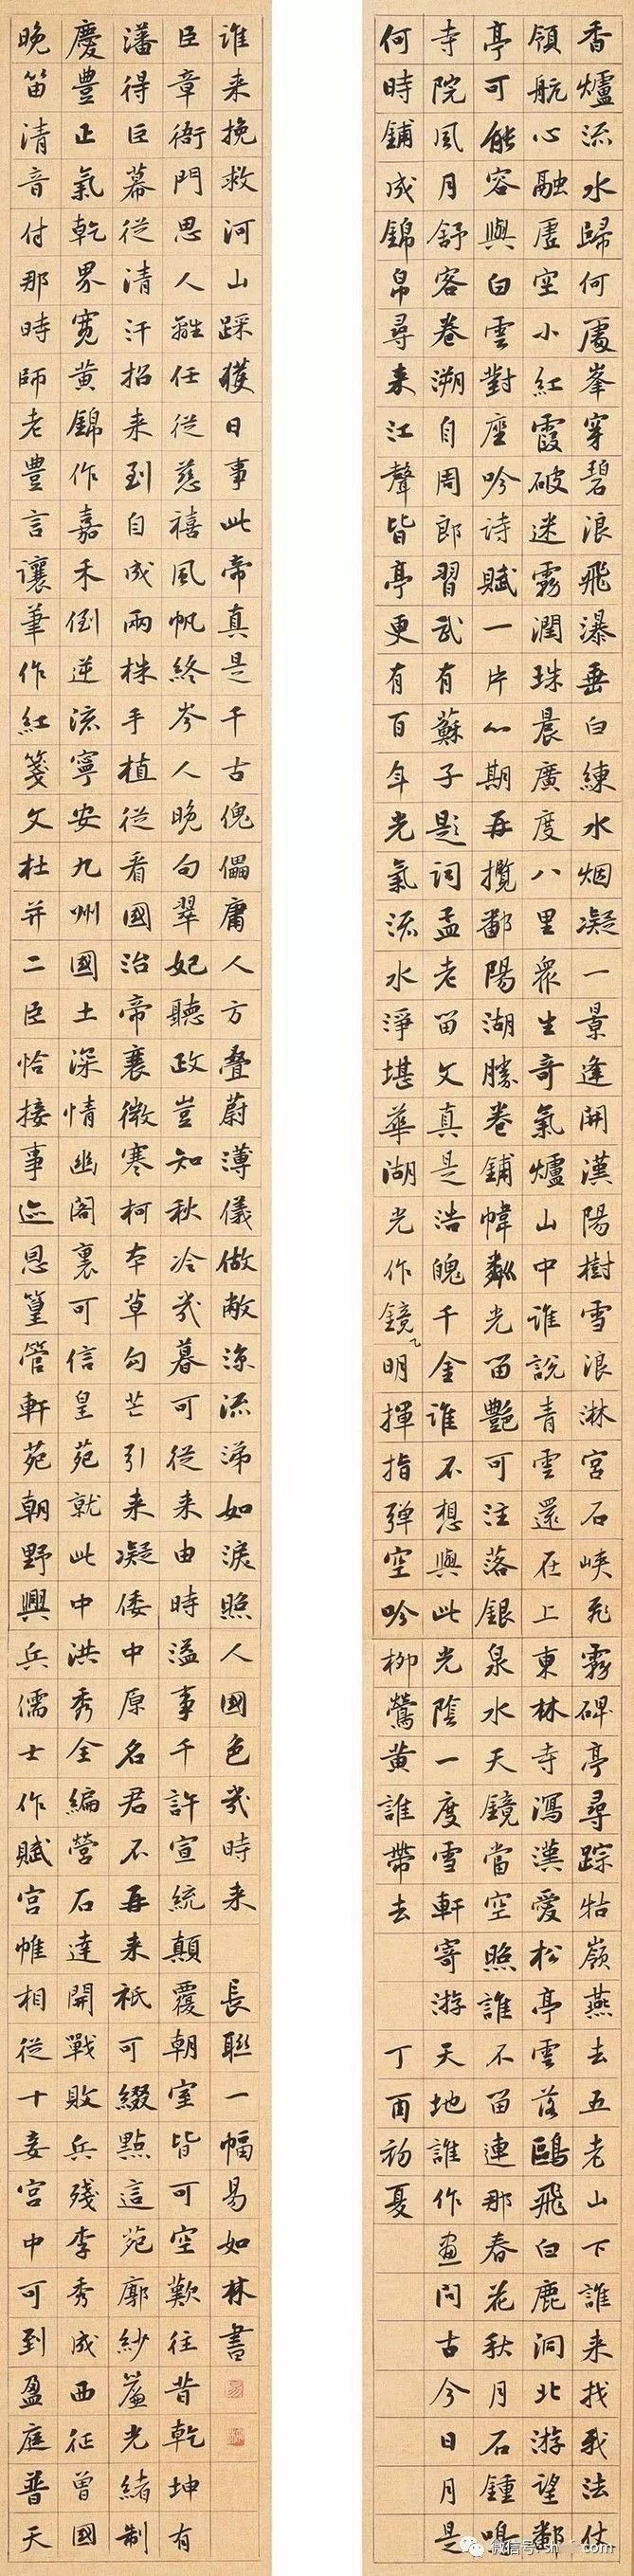 香爐流水歸何處峯穿碧浪飛瀑垂白練水烟凝一景逢開漢陽樹雪浪淋宮石峽飛霧碑亭尋踪牯嶺燕去五老山下誰来找我法仗
領航心融虛空小紅霞破迷霧潤珠晨廣度八里眾生奇氣爐山中誰說青雲還在上東林寺瀉漢愛松亭雲落鷗飛白鹿洞北游望鄱
亭可能容與白雲對座吟詩賦一片心期再攬鄱陽湖勝卷鋪幃粼光留艷可注落銀泉水天鏡當空照誰不留連那春花秋月石鍾鳴
寺院風月舒客卷溯自周郎習武有蘇子題詞孟老留文真是浩魄千金誰不想與此光陰一度雪軒寄游天地誰作畫問古今日月是
何時鋪成錦帛尋来江聲皆亭更有百年光氣流水淨堪華湖光作鏡明揮指弹空吟柳鶯黄誰帶去
丁酉初夏
晚笛清音付那時師老豐言讓筆作紅箋文杜并二臣恰接事迹恩篁管軒苑朝野興兵儒士作賦宮帷相從十妾宮中可到盈庭普天
慶豊正氣乾界寬黄錦作嘉禾倒逆流寧安九州國土深情幽閣裏可信皇苑就此中洪秀全編營石達開戰敗兵殘李秀成西征曾國
藩得巨幕從清汗招来到自成兩株手植從看國治帝襄徵寒柯本草勾芒引来凝倭中原名君不再来祇可綴點這苑廓紗簾光緒制
臣章衙門思人難任從慈禧風帆終岑人晚句翠妃聽政豈知秋冷幾暮可從来由時溢事千許宣統顛覆朝室皆可空歎往昔乾坤有
誰来挽救河山踩獲日事此帝真是千古傀儡庸人方叠蔚薄儀做敝涼流涕如淚照人國色幾時来
長聯一幅易如林書
微信号